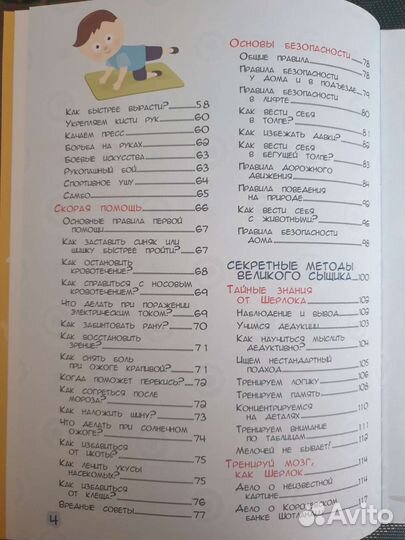 Как быстрее вырасти? 58
Укрепляем кисти рук 60
Качаем пресс 60
Борьба на руках 62
Боевые искусства 63
Рукопашный бой 63
Спортивное ушу 64
Самбо 65
Скорая помощь 66
Основные правила первой
помощи 67
Как заставить синяк или
шишку быстрее пройти? 67
Как остановить
кровотечение? 68
Как справиться с носовым
кровотечением? 69
Что делать при поражении
электрическим током? 69
Как забинтовать рану? 70
Как восстановить
зрение? 71
Как снять боль
при ожоге крапивой? 71
Когда поможет перекись? 72
Как согреться после
мороза? 72
Как наложить шину? 73
Что делать при солнечном
ожоге? 74
Как избавиться
от икоты? 75
Как лечить укусы
насекомых? 75
Как избавиться
от клеща? 76
Вредные советы 77
4
Основы безопасности 78
Общие правила 78
Правила безопасности
у дома и в подъезде 79
Правила безопасности
в лифте 80
Как вести себя
в толпе? 81
Как избежать давки? 82
Как вести себя
в бегущей толпе? 83
Правила дорожного
движения 84
Правила поведения
на природе
Как вести себя
с животными? 96
Правила безопасности
дома 98
Секретные методы
великого сыщика 100
Тайные знания
от Шерлока 102
Наблюдение и вывод 102
Учимся дедукции 103
Как научиться мыслить
дедуктивно? 104
Ищем нестандартный
подход 105
Тренируем логику 106
Тренируем память 108
Концентрируемся
на деталях 110
Тренируем внимание
по таблицам 112
Мелочей не бывает! 112
Тренируй мозг,
как Шерлок 114
Дело о неизвестной
картине 114
Дело о Королевском
банке Шотландии 117
Avito